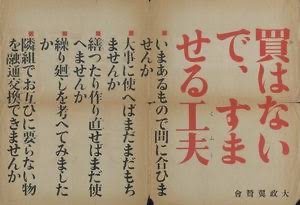 買はない
で、すま
せる工夫
大政翼賛會
いまあるもので間に合ひま
せんか
大事に使へばまだまだもち
ませんか
繕つたり作り直せばまだ使
へませんか
繰り廻しを考へてみました
か
隣組でお互ひに要らない物
を融通交換できませんか